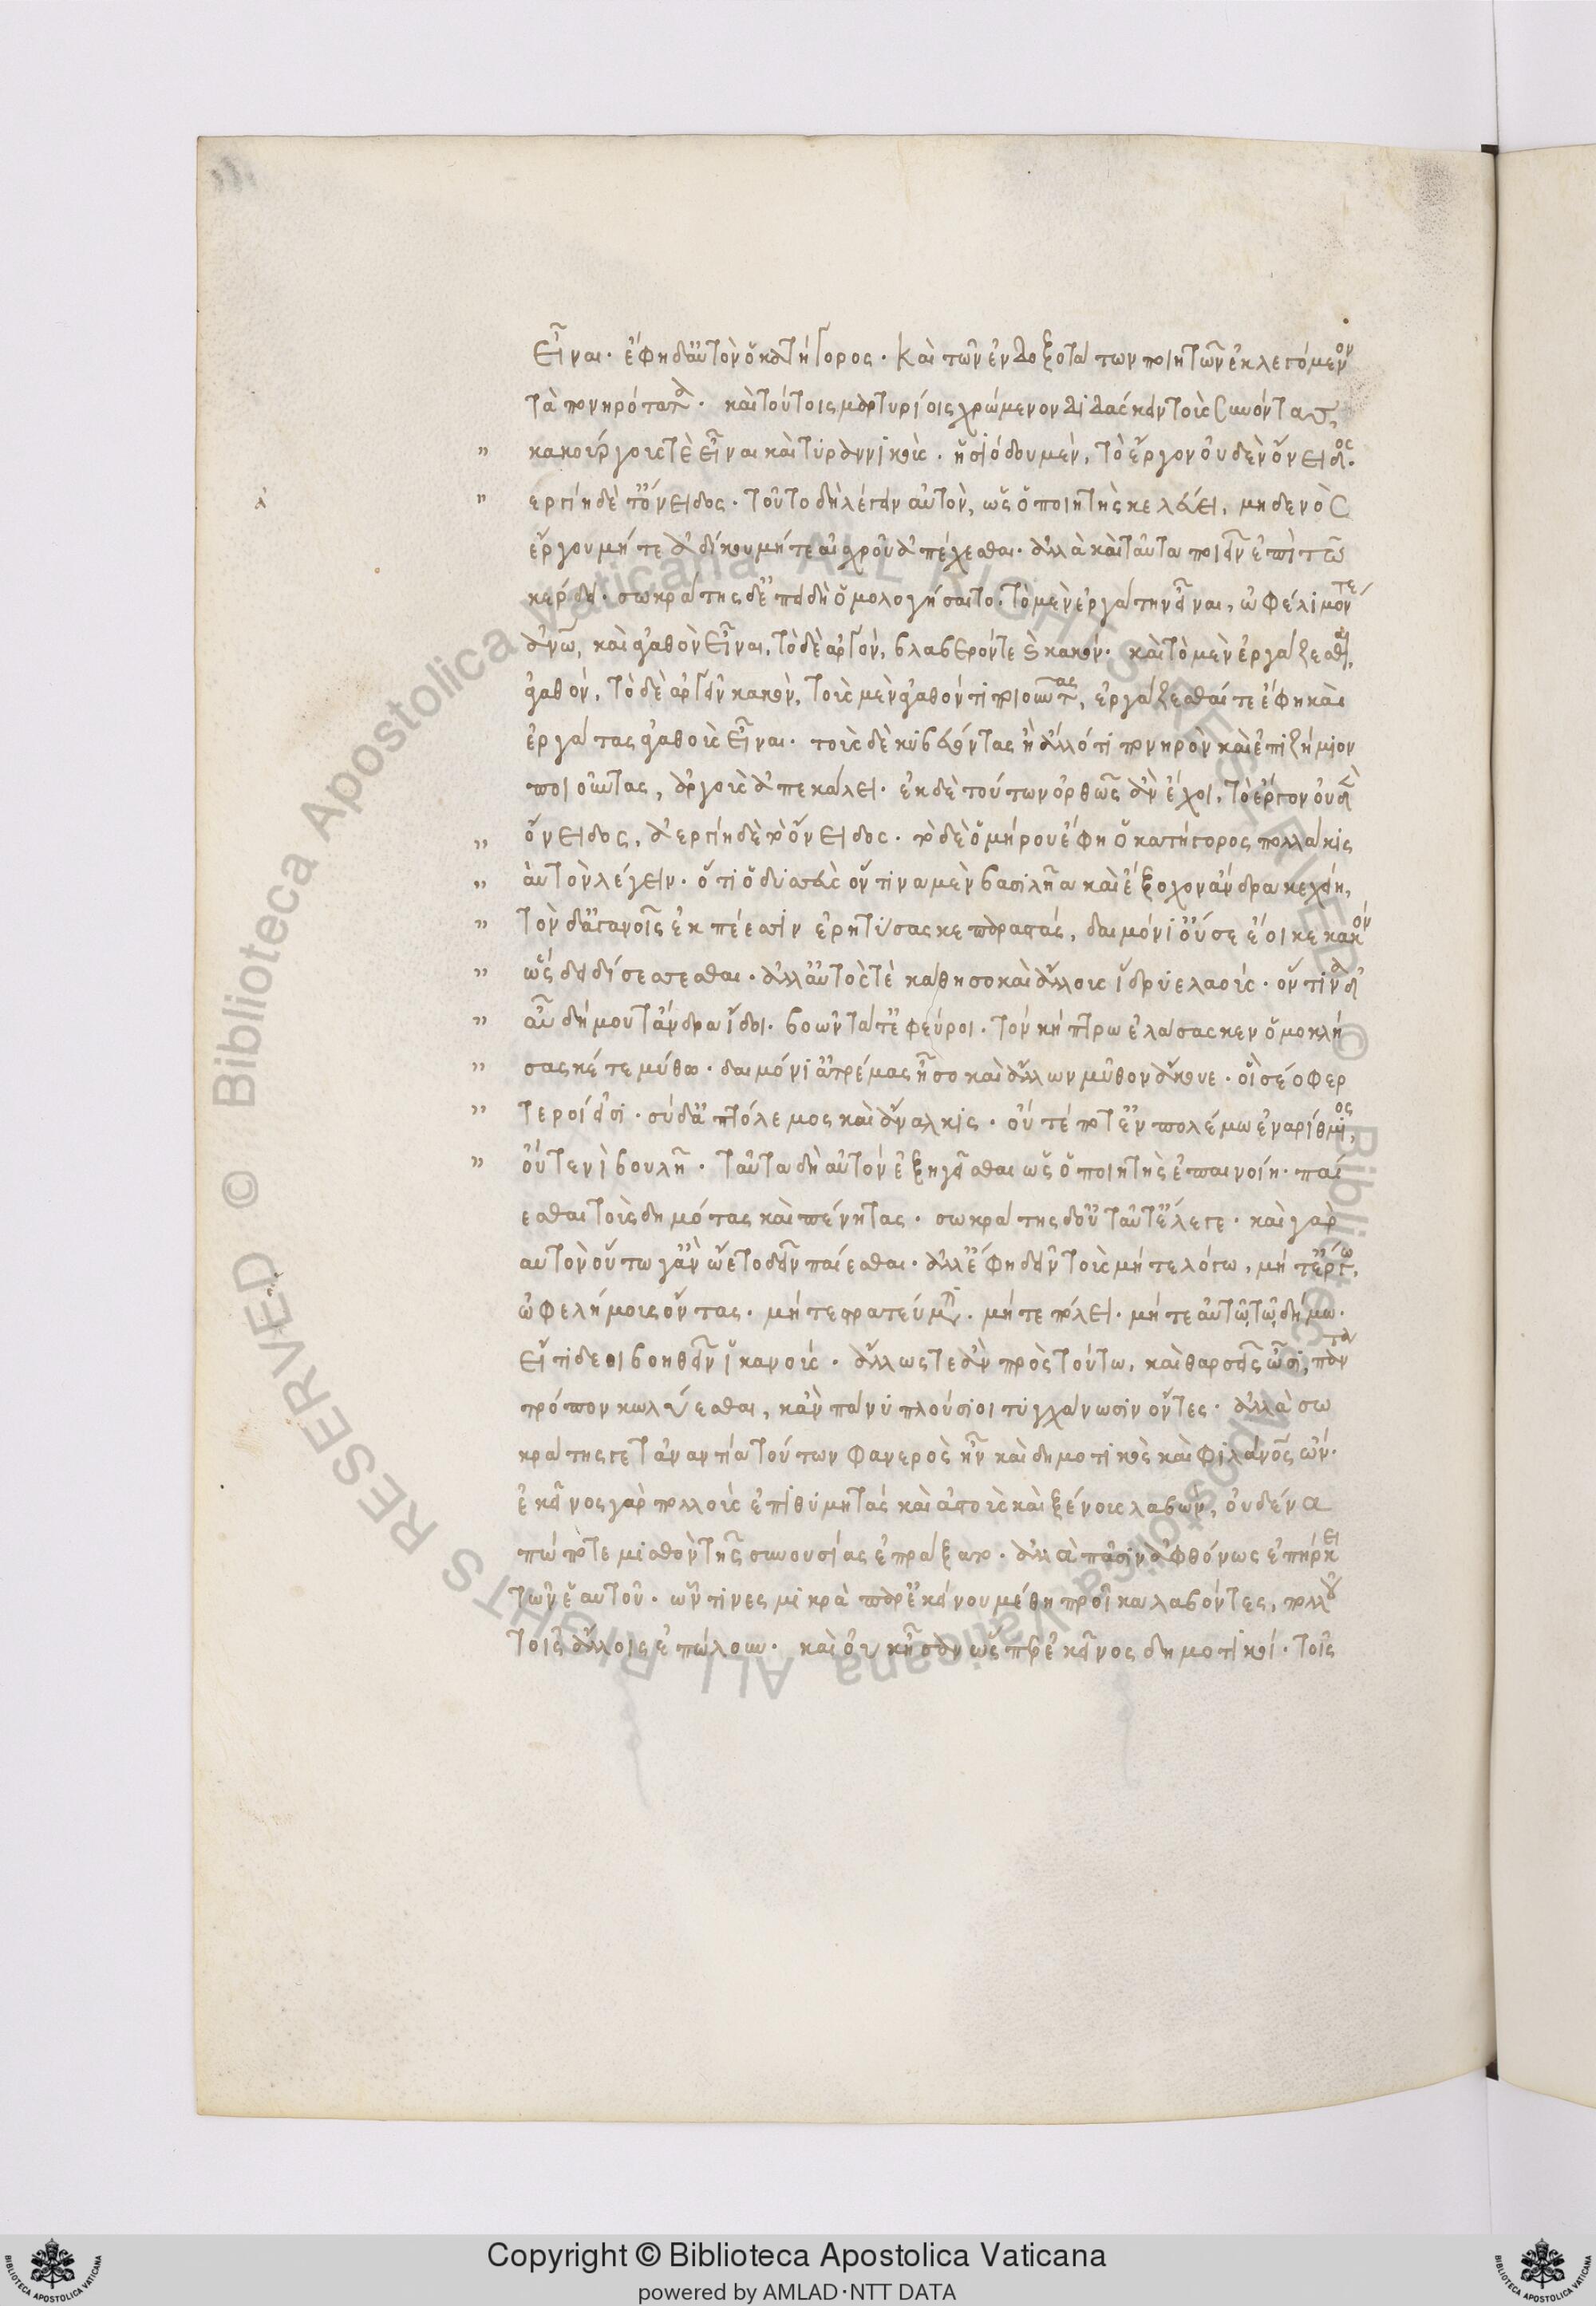 εἶναι. ἔφη δ' αὐτὸν ὁ κατήγορος. καὶ τῶν ἐνδοξοτάτων ποιητῶν ἐκλεγόμενον
τὰ πονηρότατα. καὶ τούτοις μαρτυρίοις χρώμενον διδάσκειν τοὺς συνόντας,
κακούργους τὲ εἶναι καὶ τυραννικούς. ἡσιόδου μὲν, τὸ ἔργον οὐδὲν ὄνειδος.
ἀεργίη δέ τ' ὄνειδος. τοῦτο δὴ λέγειν αὐτὸν, ὡς ὁ ποιητὴς κελεύει, μηδενὸς
ἔργου μήτε ἀδίκου μήτε αἰσχροῦ ἀπέχεσθαι. ἀλλὰ καὶ ταῦτα ποιεῖν ἐπὶ τῶ
κέρδει. σωκράτης δ' ἐπειδὴ ὁμολογήσαιτο. τὸ μὲν ἐργάτην εἶναι, ὠφέλιμόν τε
ἀνω, καὶ ἀγαθὸν εἶναι, τὸ δὲ ἀργὸν, βλαβερόν τε καὶ κακόν. καὶ τὸ μὲν ἐργάζεσθαι,
ἀγαθόν, τὸ δὲ ἀργεῖν κακὸν, τοὺς μὲν ἀγαθόν τι ποιοῦντας, ἐργάζεσθαί τε ἔφη καὶ
ἐργάτας ἀγαθοὺς εἶναι. τοὺς δὲ κυβεύοντας ἢ ἄλλό τι πονηρὸν καὶ ἐπιζήμιον
ποιοῦντας, ἀργοὺς ἀπεκάλει. ἐκ δὲ τούτων ὀρθῶς ἂν ἔχοι, τὸ ἔργον οὐδὲν
ὄνειδος, ἀεργίη δέ τ' ὄνειδος. τὸ δὲ ὁμήρου ἔφη ὁ κατήγορος πολλάκις
αὐτὸν λέγειν. ὅτι ὀδυσσεὺς ὅντινα μὲν βασιλῆα καὶ ἔξοχον ἄνδρα κιχείη,
τὸν δ' ἀγανοῖς ἐκπέεσσιν ἐρητύσασκε παραστάς, δαιμόνι' οὔ σε ἔοικε κακὸν
ὣς δειδίσσεσθαι. ἀλλ' αὐτός τὲ κάθησο καὶ ἄλλους ἵδρυε λαούς. ὅντινα δ'
αὖ δήμου τ' ἄνδρα ἴδοι. βοῶντά τ' ἐφεύροι. τὸν σκήπτρω ἐλάσασκεν ὁμοκλή
σασκέ τε μύθω. δαιμόνι' ἀτρέμας ἧσο καὶ ἄλλων μῦθον ἄκουε. οἳ σέο φέρ
τεροί εἰσι. σὺ δ' ἀπτόλεμος καὶ ἄναλκις. οὔτέ ποτ' ἐν πολέμω ἐναρίθμιος,
οὔτ' ἐνὶ βουλῆ. ταῦτα δὴ αὐτὸν ἐξηγεῖσθαι ὡς ὁ ποιητὴς ἐπαινοίη. παί
εσθαι τοὺς δημότας καὶ πένητας. σωκράτης δ' οὐ ταῦτ' ἔλεγε. καὶ γὰρ
αυτὸν οὕτω γ' ἂν ὤετο δεῖν παίεσθαι. ἀλλ' ἔφη δεῖν τοὺς μήτε λόγω, μήτ' ἔργω,
ὠφελήμους ὄντας. μήτε στρατεύματι. μήτε πόλει. μήτε αὐτῶ τῶ δήμω.
εἴ τι δέοι βοηθεῖν ἱκανούς. ἄλλως τε ἂν πρὸς τούτω, καὶ θαρσεῖς ὦσι, πάντα
τρόπον κωλύεσθαι, κἂν πάνυ πλούσιοι τυγχάνωσιν ὄντες. ἀλλὰ σω
κράτης γε τἀναντία τούτων φανερὸς ἦν καὶ δημοτικὸς καὶ φιλάνος ὤν.
ἐκεῖνος γὰρ πολλοὺς ἐπιθυμητὰς καὶ ἀστοὺς καὶ ξένους λαβών, οὐδένα
πώποτε μισθὸν τῆς συνουσίας ἐπράξατο. ἀλλὰ πᾶσιν ἀφθόνως ἐπήρκει
τῶν ἑαυτοῦ. ὧν τινες μικρὰ παρ' ἐκείνου μέρη προῖκα λαβόντες, πολλοῦ
τοῖς ἄλλοις ἐπώλουν. καὶ οὐκ ἦσαν ὥσπερ ἐκεῖνος δημοτικοί. τοῖς
Copyright © Biblioteca Apostolica Vaticana
powered by AMLAD·NTT DATA